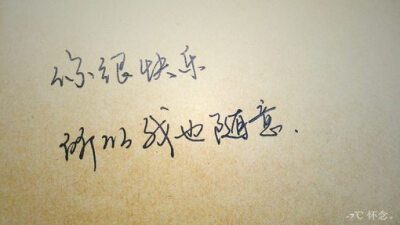 你很快乐
所以我也随意.
-7℃怀念。